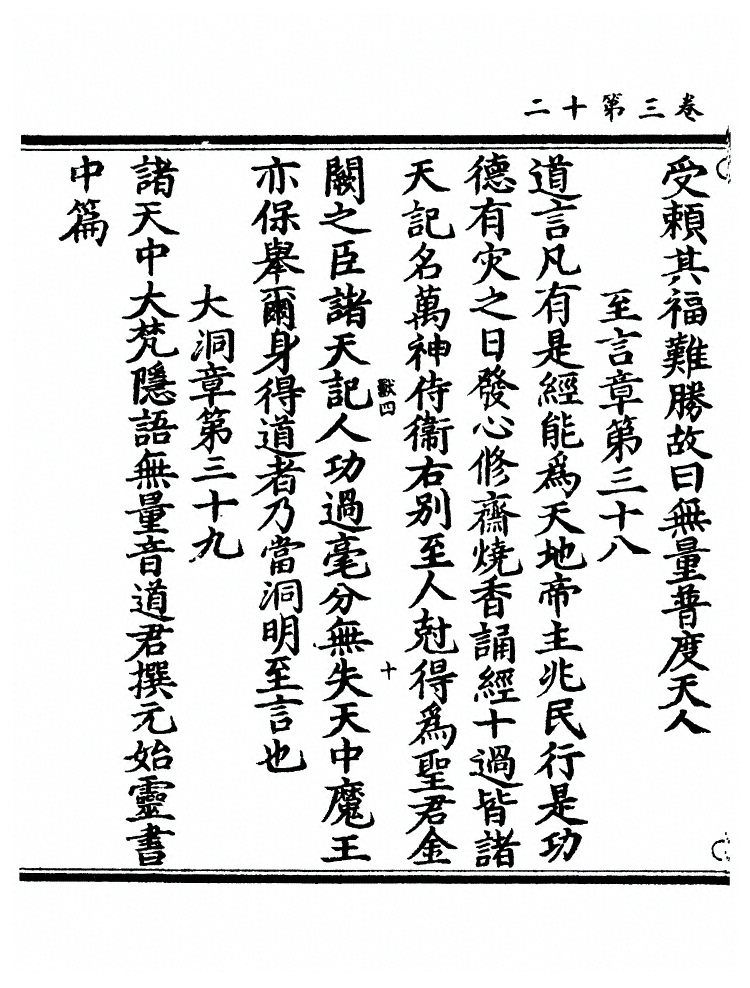 卷三第十二
受賴其福難勝故曰無量普度天人
至言章第三十八
道言凡有是經能爲天地帝主兆民行是功
德有灾之日發心修齋燒香誦經十過皆諸
天記名萬神侍衞右別至人尅得爲聖君金
獸四
十
闕之臣諸天記人功過毫分無失天中魔王
亦保舉爾身得道者乃當洞明至言也
大洞章第三十九
諸天中大梵隱語無量音道君撰元始靈書
中篇